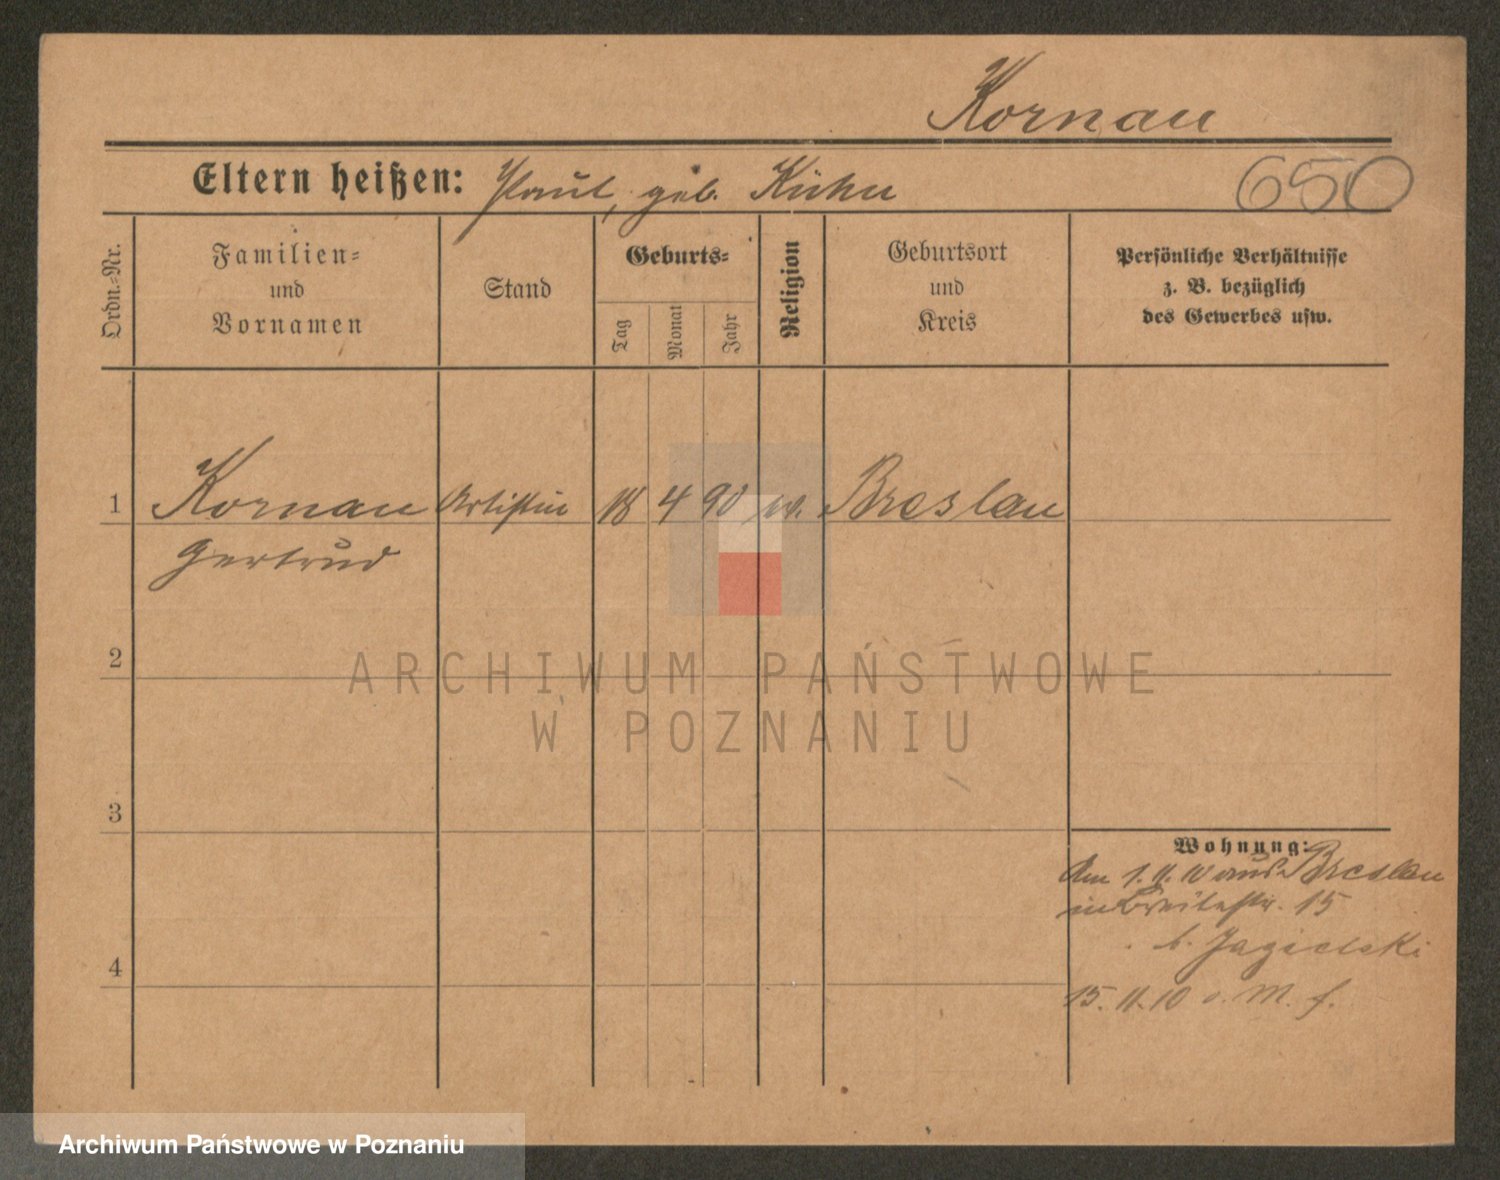 Kornau
Eltern heißen: Paul, geb. Kühn
650
Ordn.-Nr.
Familien-
und
Vornamen
Stand
Geburts-
Tag
Monat
Jahr
Religion
Geburtsort
und
Kreis
Persönliche Verhältnisse
z. B. bezüglich
des Gewerbes usw.
1 Kornau Artistin 18 4 90 Breslau
Gertrud
2
ARCHIWUM PAŃSTWOWE
W POZNANIU
3
Wohnung:
Am 1. 11. 10 aus Breslau
in Breitestr. 15
b. Jagielski
4
15. 11. 10 M. f.
Archiwum Państwowe w Poznaniu